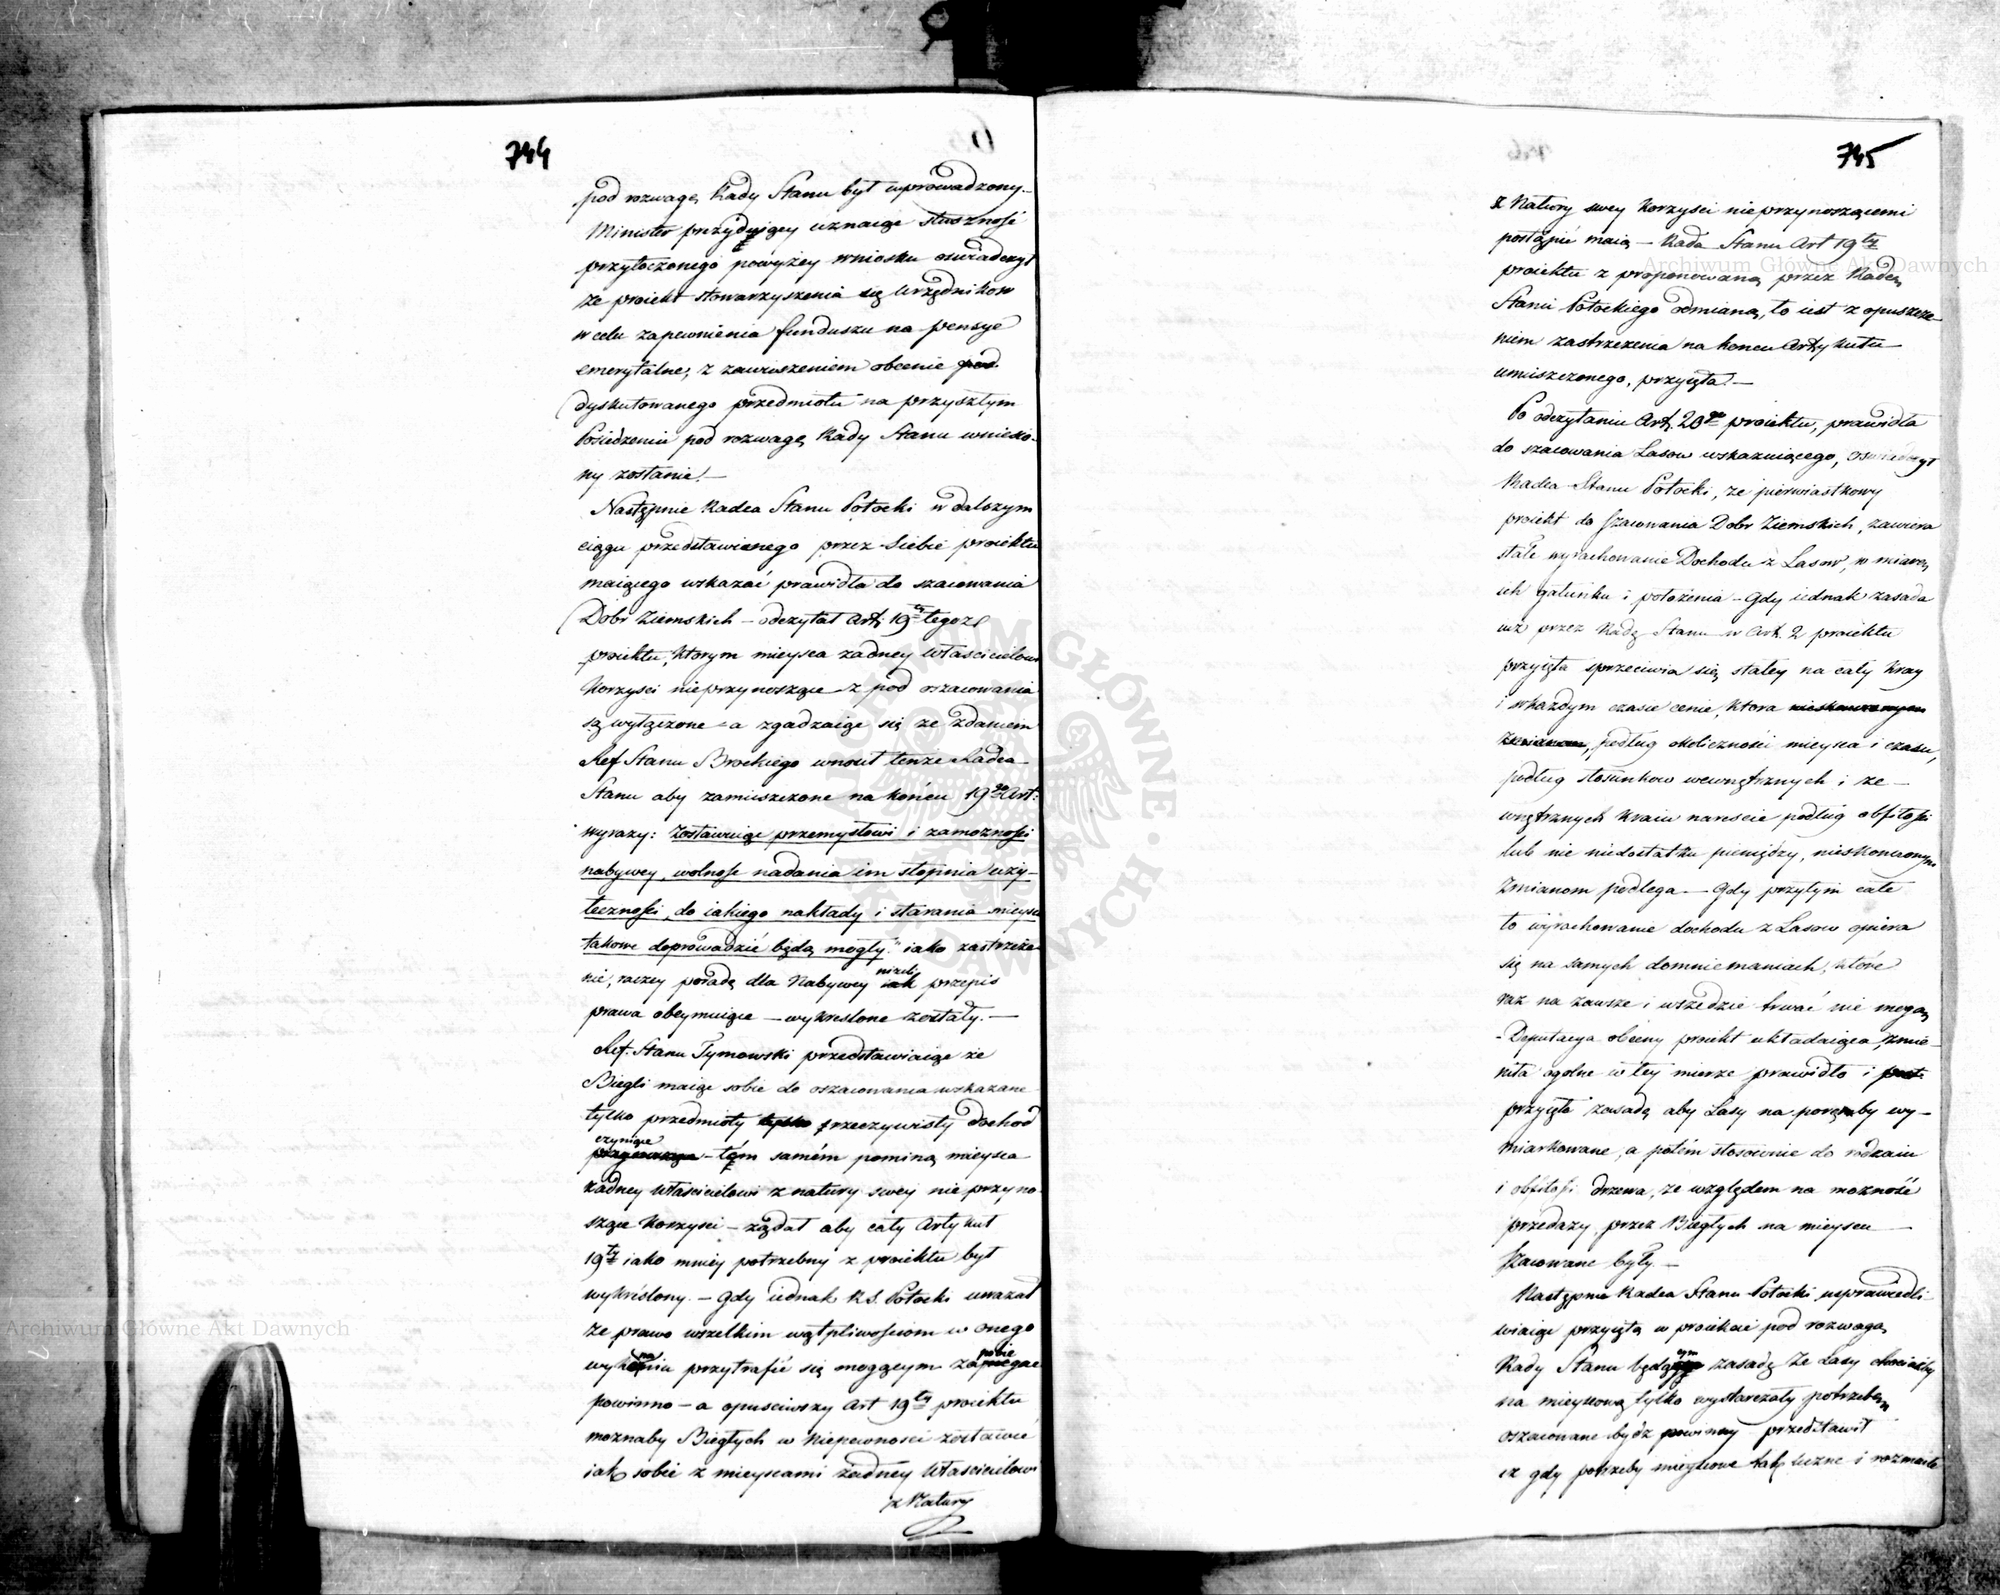 744
pod rozwagę Rady Stanu był wprowadzony.
Minister prezyduiący uznaiąc słuszność
przytoczonego powyżey wniosku oświadczył
że proiekt stowarzyszenia się Urzędnikow
w celu zapewnienia funduszu na pensye
emerytalne, z zawieszeniem obecnie
dyskutowanego przedmiotu na przyszłym
Posiedzeniu pod rozwagę Rady Stanu wniesio-
ny zostanie.—
Następnie Radca Stanu Potocki w dalszym
ciągu przedstawionego przez Siebie proiektu
maiącego wskazać prawidła do szacowania
Dobr Ziemskich — odczytał Art: 19ty tegoż
proiektu, ktorym mieysca żadney Właścicielowi
Korzyści nieprzynoszące z pod oszacowania
są wyłączone — a zgadzaiąc się ze zdaniem
Ref Stanu Brockiego wniósł tenże Radca
Stanu aby zamieszczone na końcu 19go Art:
wyrazy: Zostawuiąc przemysłowi i zamożności
nabywcy, wolność nadania im stopnia uży-
teczności, do iakiego nakłady i starania mieysca
takowe doprowadzić będą mogły." iako zastrzeże
nie, raczey poradę dla Nabywcy niżeli iak przepis
prawa obeymuiące — wykreślone zostały.—
Ref. Stanu Tymowski przedstawiaiąc że
Biegli maiąc sobie do oszacowania wskazane
tylko przedmioty tylko przeczywisty dochod
czyniące — tém samém pominą mieysca
żadney Właścicielowi z natury swey nie przyno-
szące Korzyści — żądał aby cały Artykuł
19ty iako mniey potrzebny z proiektu był
wykréślony. — Gdy iednak R.S. Potocki uważał
że prawo wszelkim wątpliwościom w onego
wykonaniu przytrafić się mogącym zapobiegać
powinno — a opuściwszy Art 19ty proiektu
możnaby Biegłych w Niepewności zostawić
iak sobie z mieyscami żadney Właścicielowi
z Natury
745
z Natury swey Korzyści nieprzynoszącemi
postąpić maią — Rada Stanu Art 19ty
proiektu z proponowaną przez Radcę
Stanu Potockiego odmianą, to iest z opuszcze-
niem zastrzeżenia na końcu Artykułu
umieszczonego, przyięła.—
Po odczytaniu Art. 20go proiektu, prawidła
do szacowania Lasow wskazuiącego, oświadczył
Radca Stanu Potocki, że pierwiastkowy
proiekt do Szacowania Dobr Ziemskich, zawiera
stałe wyrachowanie Dochodu z Lasow, w miarę
ich gatunku i położenia — Gdy iednak zasada
już przez Radę Stanu w Art. 2 proiektu
przyięta sprzeciwia się stałey na cały Kray
i w każdym czasie cenie, Ktora nieskończonym
zmianom, podług okoliczności mieysca i czasu,
podług stosunkow wewnętrznych i ze-
wnętrznych Kraiu nareście podług obfitości
lub nie niedostatku pieniędzy, nieskończonym
Zmianom podlega — Gdy przytym całe
to wyrachowanie dochodu z Lasow opiera
się na samych domniemaniach, które
raz na zawsze i wszędzie trwać nie mogą
— Deputacya obecny proiekt układaiąca, zmie-
niła ogolne w tey mierze prawidło i
przyięła zasadę aby Lasy na poręby wy-
miarkowane, a potém stosownie do rodzaiu
i obfitości drzewa, ze względem na możność
przedaży, przez Biegłych na mieyscu
Szacowane były.—
Następnie Radca Stanu Potocki usprawiedli-
wiaiąc przyiętą w proiekcie pod rozwagą
Rady Stanu będącym zasadę że Lasy chociażby
na mieyscową tylko wystarczały potrzebę
oszacowane bydź powinny przedstawił
iż gdy potrzeby mieyscowe tak liczne i rozmaite
Archiwum Główne Akt Dawnych
Archiwum Główne Akt Dawnych